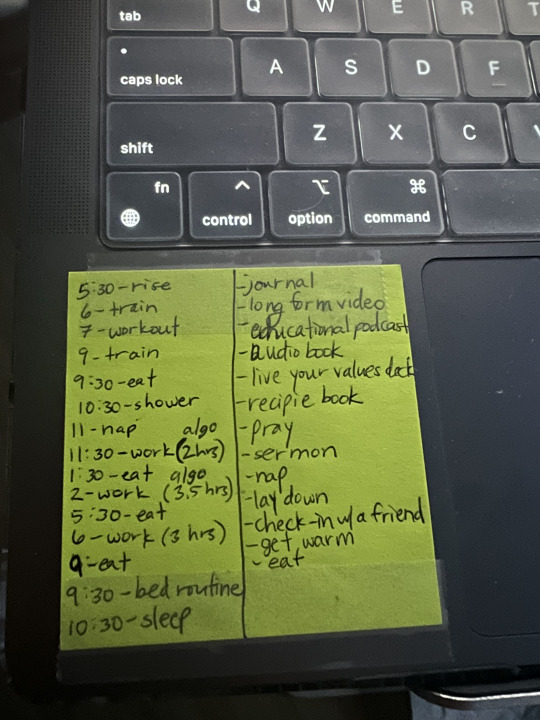 Q W E R T
tab
A S D F
caps lock
Z X C
shift
fn ^ ⌥ ⌘
control option command
5:30-rise
6-train
7-workout
9-train
9:30-eat
10:30-shower
11-nap algo
11:30-work (2hrs)
1:30-eat algo
2-work (3.5 hrs)
5:30-eat
6-work (3 hrs)
9-eat
9:30-bed routine
10:30-sleep
-journal
-long form video
-educational podcast
-audio book
-live your values deck
-recipie book
-pray
-sermon
-nap
-lay down
-check-in w/a friend
-get warm
-eat